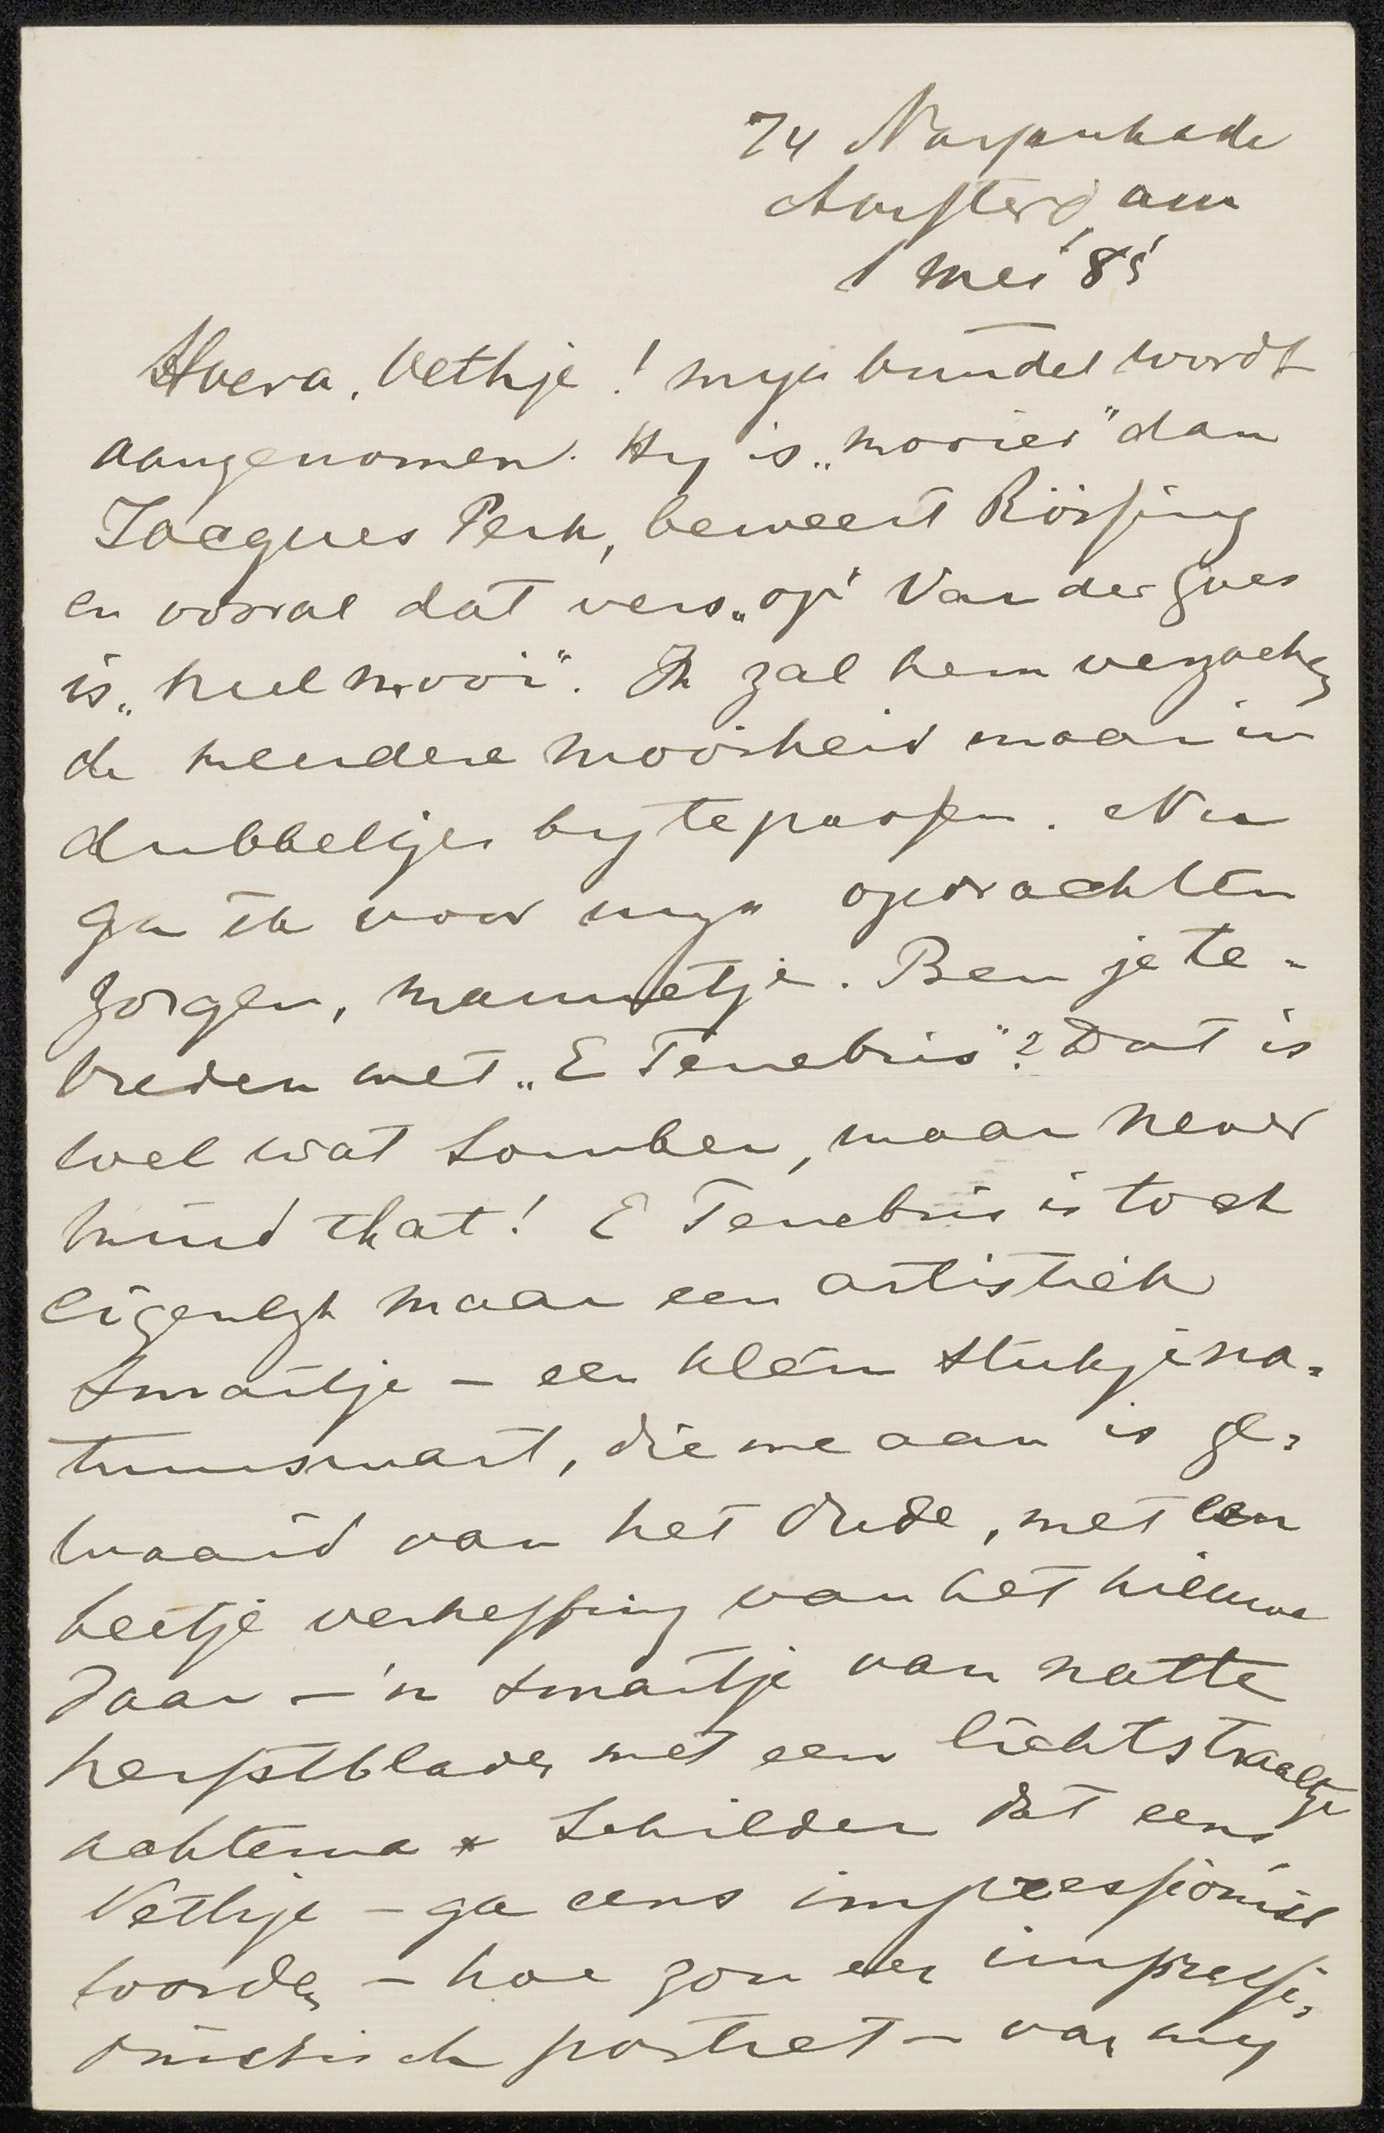 74 Nassaukade
Amsterdam
1 Mei '85
Hoera, Vethje! myn bundel wordt
aangenomen. Hy is „mooier" dan
Jacques Perk, beweert Rössing
en vooral dat vers „op" Van der Goes
is „heel mooi". Ik zal hem verzoeken
de meerdere mooiheid maar in
dubbeltjes by te passen. Nu
ga ik voor myn opdrachten
zorgen, mannetje. Ben je te-
vreden met „E Tenebris"? Dat is
wel wat somber, maar never
mind that! E Tenebris is toch
eigenlyk maar een artistiek
smartje – een klein stukje na-
tuursmart, die me aan is ge-
waaid van het Oude, met een
beetje verheffing van het nieuwe
Jaar – 'n smartje van natte
herfstblaren met een lichtstraaltje
achterna * Schilder dat eens
Vethje – ga eens impressionist
worden – hoe zou een impressi-
onistisch portret – van my